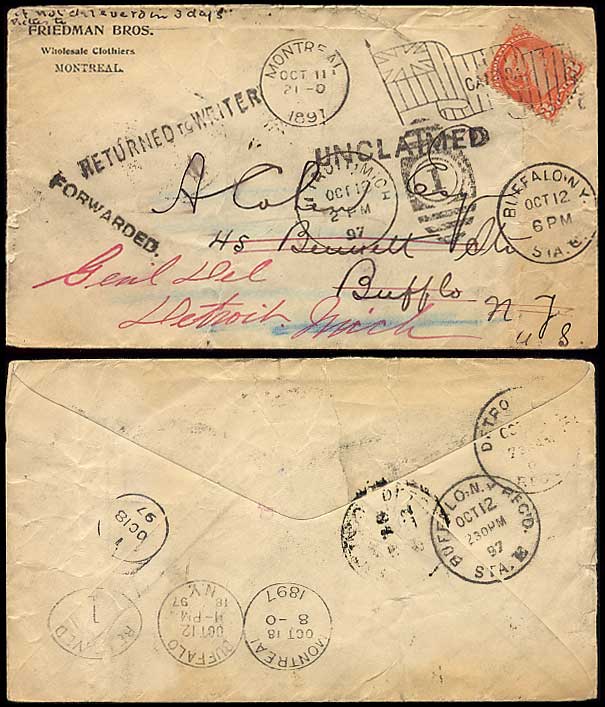 if not delivered in 3 days
return to
FRIEDMAN BROS.
Wholesale Clothiers
MONTREAL.
MONTREAL
OCT 11
21-0
1897
CANADA
RETURNED TO WRITER
UNCLAIMED
FORWARDED.
DETROIT, MICH
OCT 12
2 PM
97
1
BUFFALO. N.Y.
OCT 12
6 PM
STA. B
A Cohen
45 Bennett
Bufflo N. Y
U S.
Genl Del
Detroit. Mich
DETRO
OCT
BUFFALO, N.Y. REC'D.
OCT 12
230 PM
97
STA. B
DET
OC 18
97
1
MONTREAL
OCT 18
8-0
1897
BUFFALO
N.Y.
OCT 12
11-PM
97
RECEIVED
1